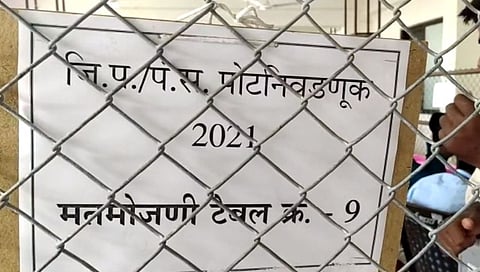 जि.प./पं.स. पोटनिवडणूक
2021
मतमोजणी टेबल क्र. - 9